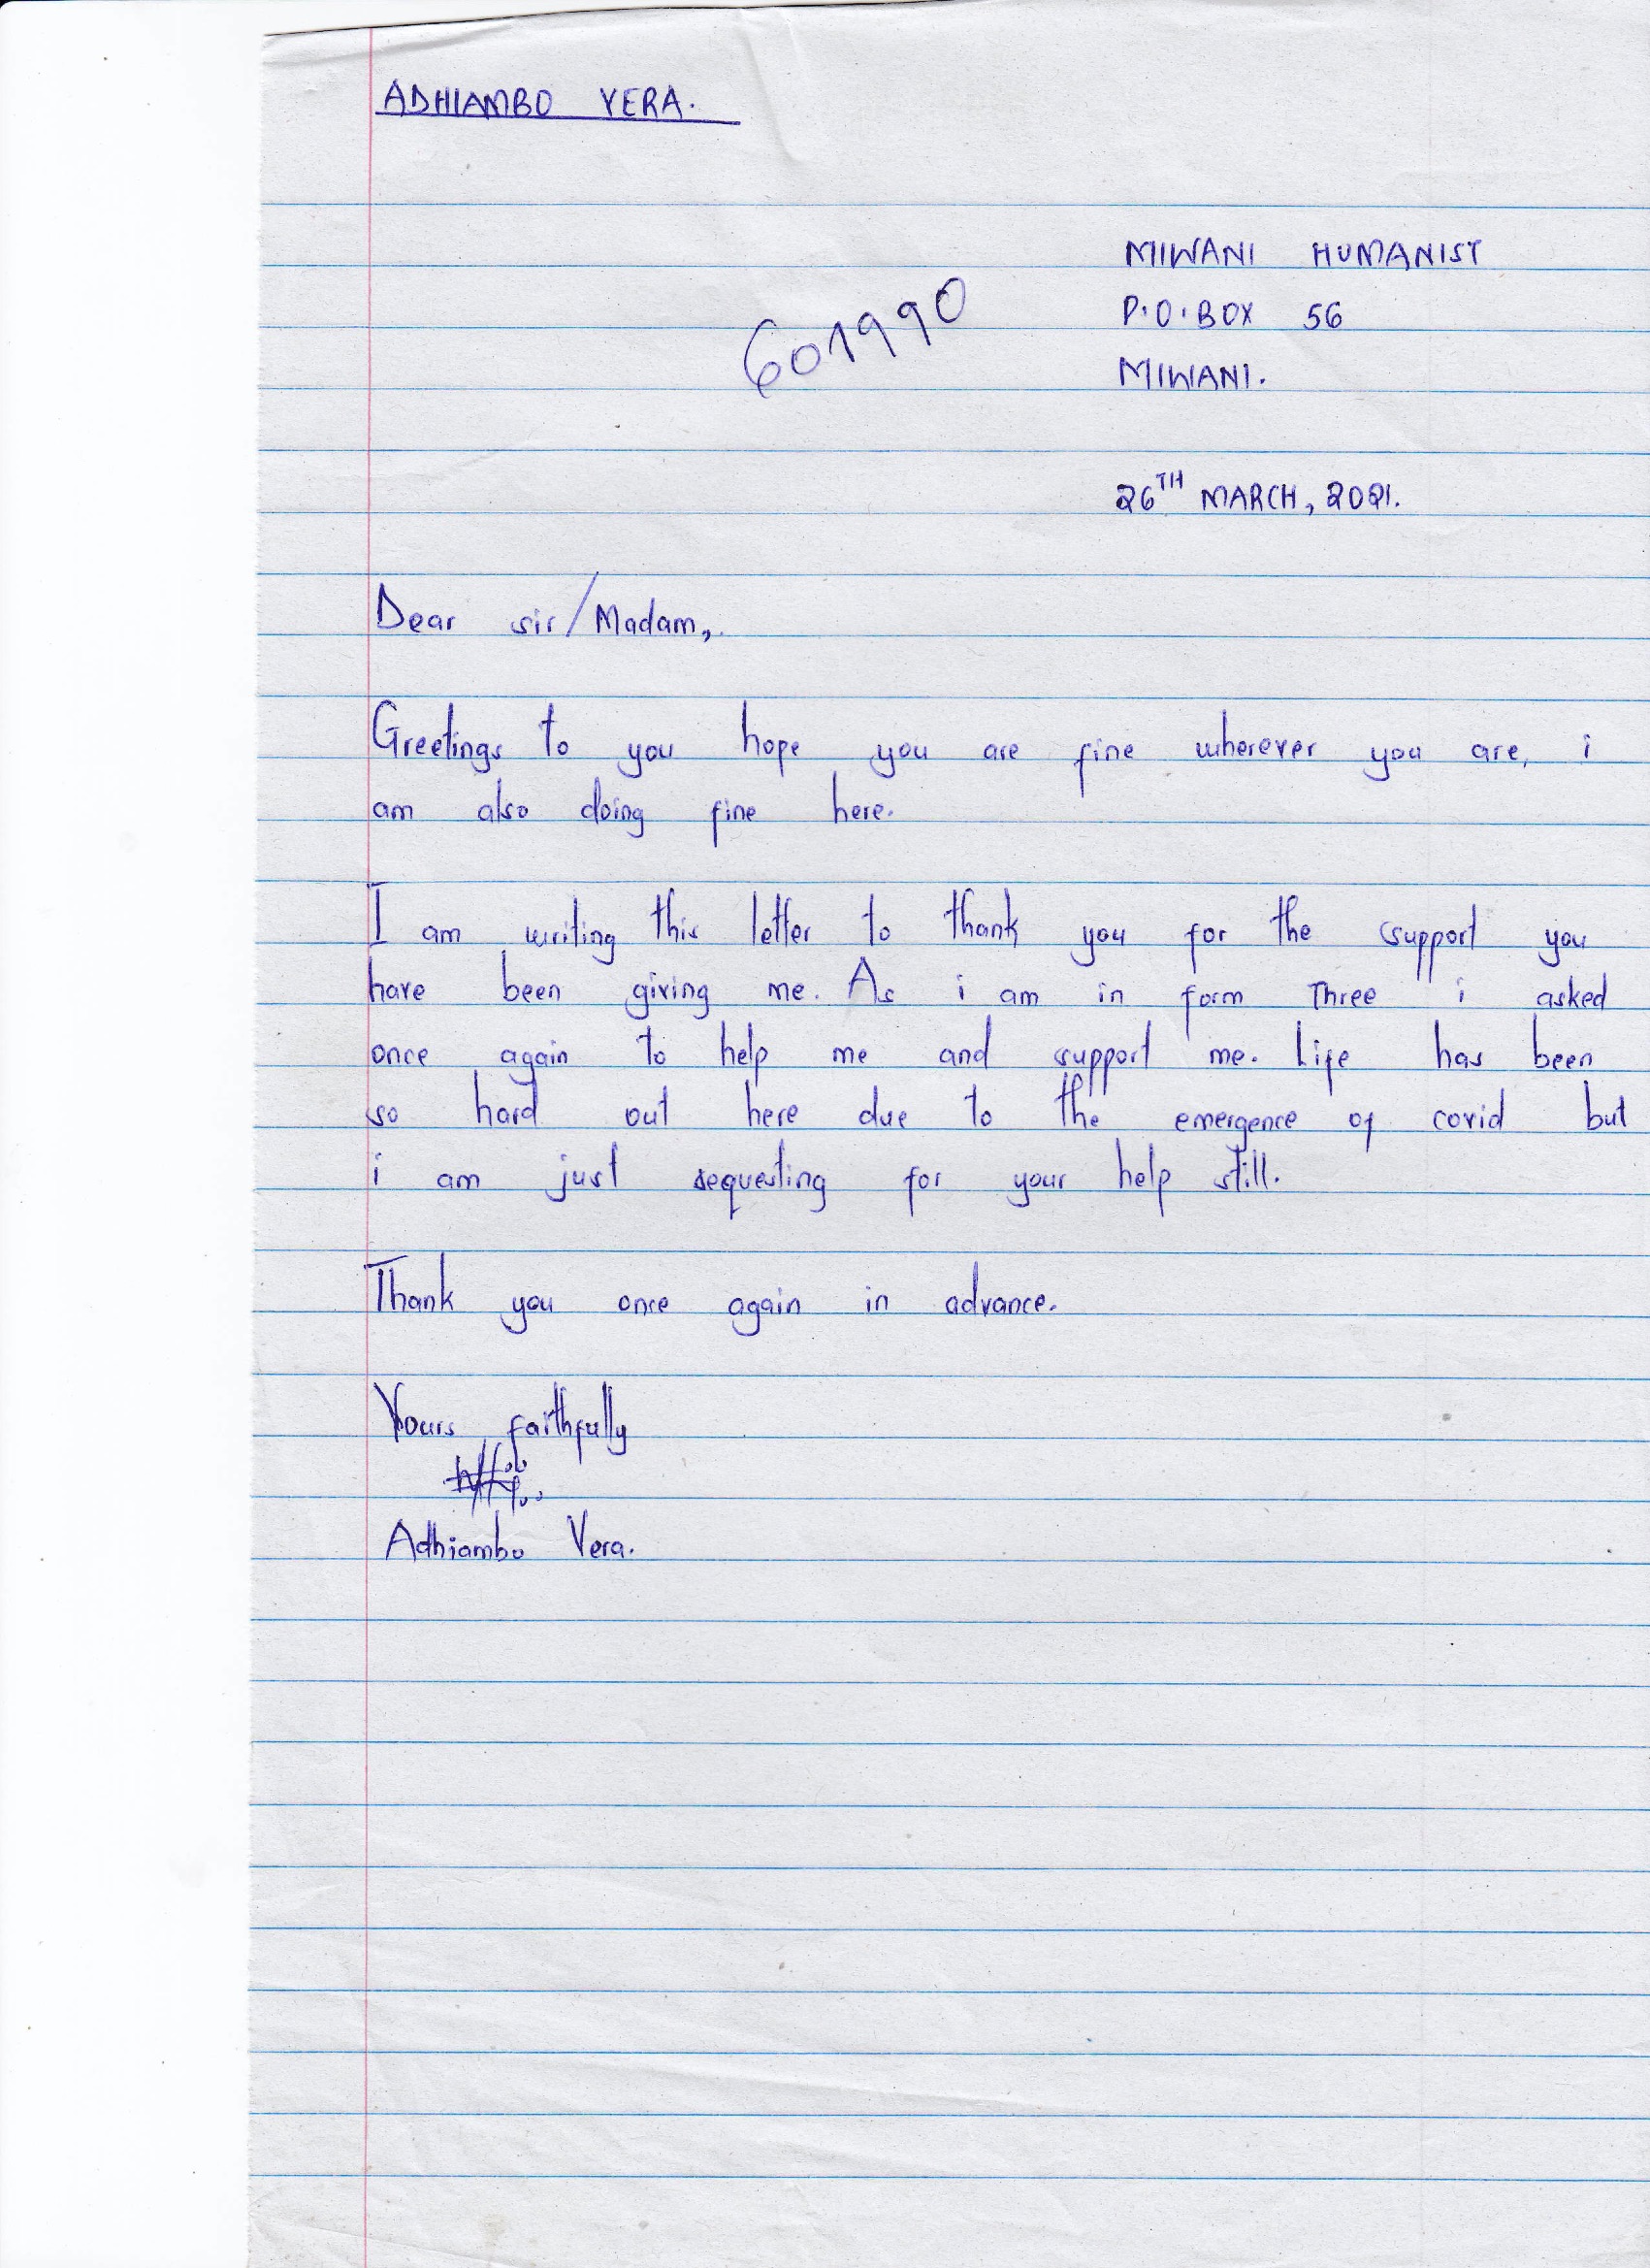 ADHIAMBO VERA.
MIWANI HUMANIST
601990
P.O.BOX 56
MIWANI.
26TH MARCH, 2021.
Dear sir/Madam,.
Greetings to you hope you are fine wherever you are, i
am also doing fine here.
I am writing this letter to thank you for the support you
have been giving me. As i am in form Three i asked
once again to help me and support me. Life has been
so hard out here due to the emergence of covid but
i am just requesting for your help still.
Thank you once again in advance.
Yours faithfully
Adhiambo Vera.